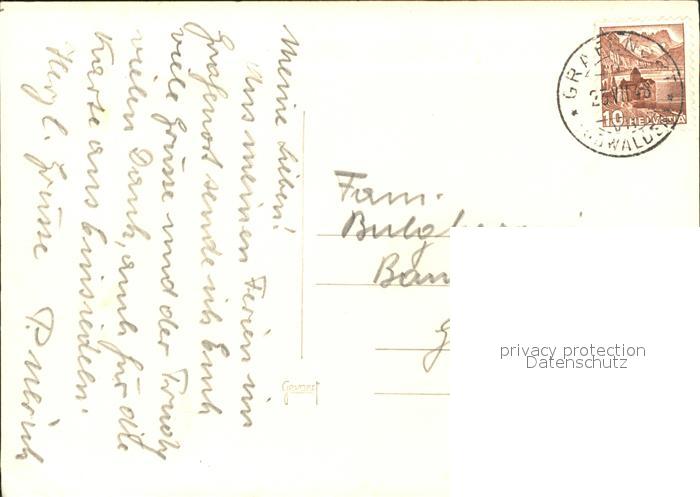 Meine Lieben!
Aus meinen Ferien in
Grafenort sende ich Euch
viele Grüsse und der Trudy
vielen Dank, auch für die
Karte aus Einsiedeln.
Herzl. Grüsse
GRAFENORT
25.VII.48
(OBWALDEN)
10 HELVETIA
Fam.
Gevaert
privacy protection
Datenschutz